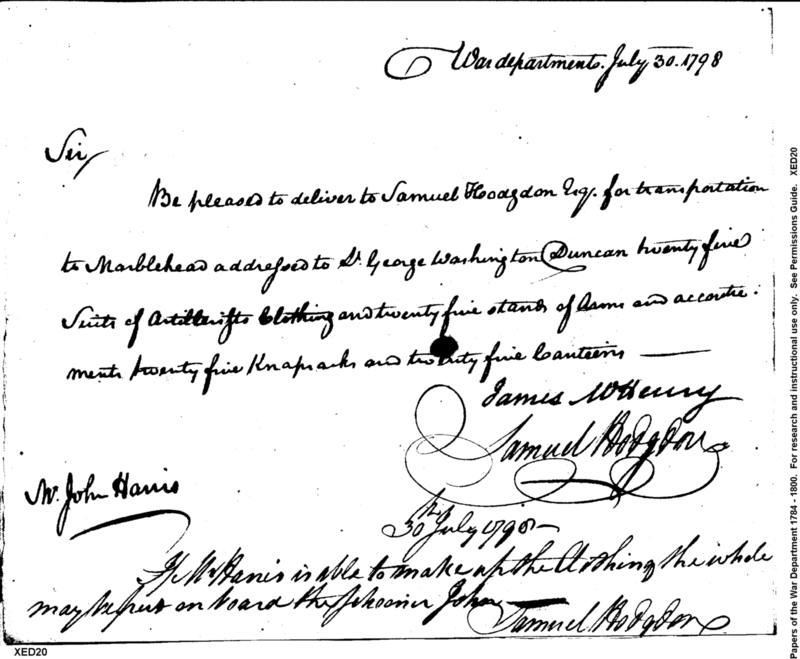 War department. July 30. 1798
Sir,
Be pleased to deliver to Samuel Hodgdon Esq. for transportation
to Marblehead addressed to Lt. George Washington Duncan twenty five
Suits of Artillerists Clothing and twenty five stands of Arms and accoutre:
ments twenty five Knapsacks and twenty five Canteens
James McHenry
Samuel Hodgdon
Mr. John Harris
30th July 1798
If Mr Harris is able to make up the Clothing the whole
may be put on board the Schooner John
Samuel Hodgdon
XED20
Papers of the War Department 1784 - 1800. For research and instructional use only. See Permissions Guide. XED20